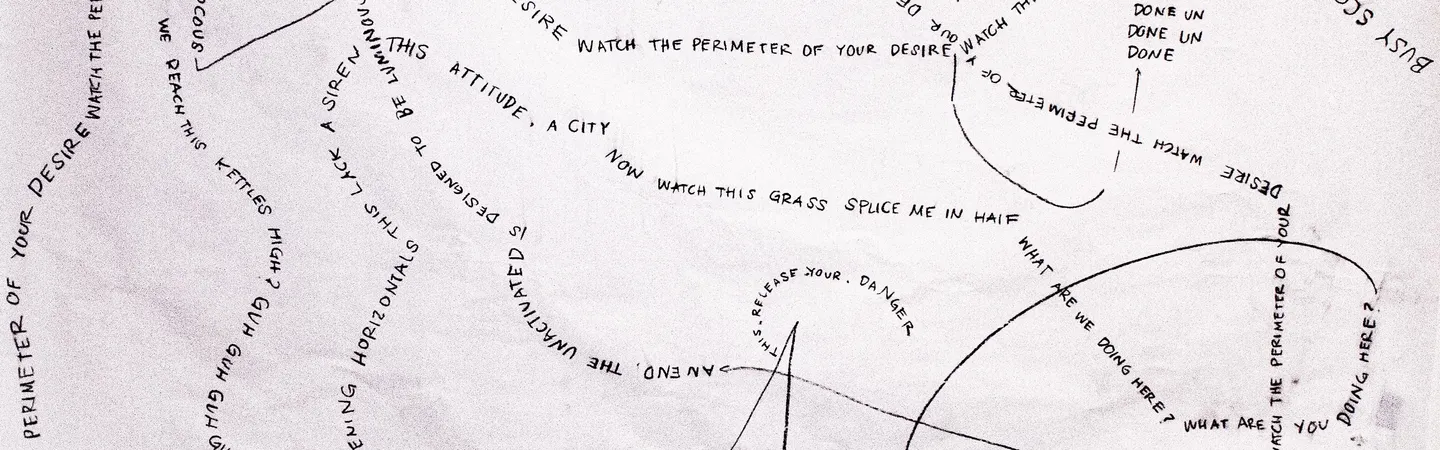 PERIMETER OF YOUR DESIRE WATCH THE
WE REACH THIS KETTLES HIGH? GUH GUH GUH
A SIREN
THIS LACK
HORIZONTALS
THIS ATTITUDE, A CITY NOW WATCH THIS GRASS SPLICE ME IN HALF WHAT ARE WE DOING HERE? WHAT ARE YOU DOING HERE?
DESIRE WATCH THE PERIMETER OF YOUR DESIRE
WATCH
DONE UN
DONE UN
DONE
BUSY
DESIRE WATCH THE PERIMETER OF
WATCH THE PERIMETER OF YOUR
THIS. RELEASE YOUR. DANGER
AN END, THE UNACTIVATED IS DESIGNED TO BE